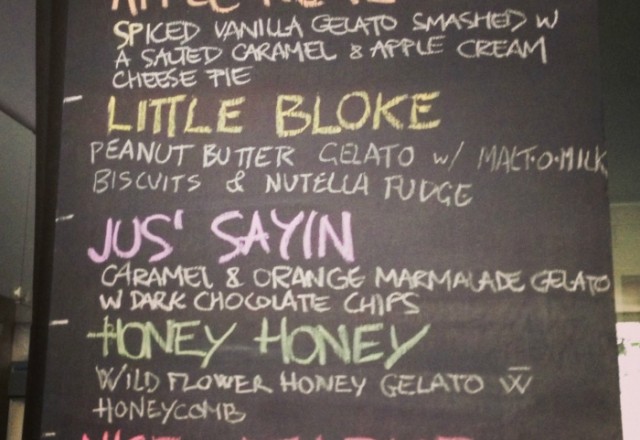 SPICED VANILLA GELATO SMASHED W
A SALTED CARAMEL & APPLE CREAM
CHEESE PIE
LITTLE BLOKE
PEANUT BUTTER GELATO w/ MALT·O·MILK
BISCUITS & NUTELLA FUDGE
JUS' SAYIN
CARAMEL & ORANGE MARMALADE GELATO
W DARK CHOCOLATE CHIPS
HONEY HONEY
WILD FLOWER HONEY GELATO W
HONEYCOMB